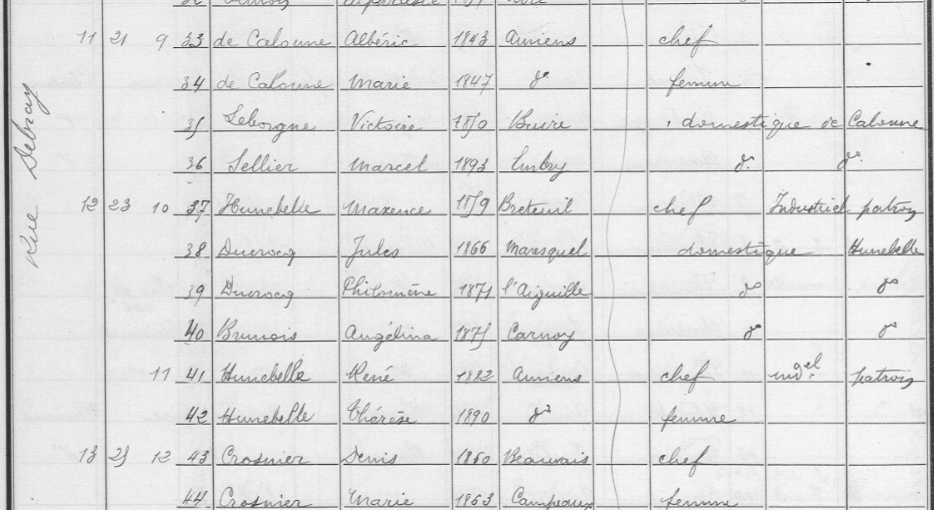 11 21 9 33 de Calonne Albéric 1843 Amiens chef
34 de Calonne Marie 1847 do femme
35 Leborgne Victoire 1850 Buire domestique de Calonne
36 Sellier Marcel 1893 do do
Rue Debray
12 23 10 37 Hunebelle Maxence 1859 Breteuil chef Industriel patron
38 Ducrocq Jules 1866 Maresquel domestique Hunebelle
39 Ducrocq Philomène 1871 l'Aiguille do do
40 Brunois Angélina 1875 Carnoy do do
11 41 Hunebelle René 1882 Amiens chef indel patron
42 Hunebelle Thérèse 1890 do femme
13 25 12 43 Crosnier Denis 1860 Beauvais chef
44 Crosnier Marie 1863 Campeaux femme